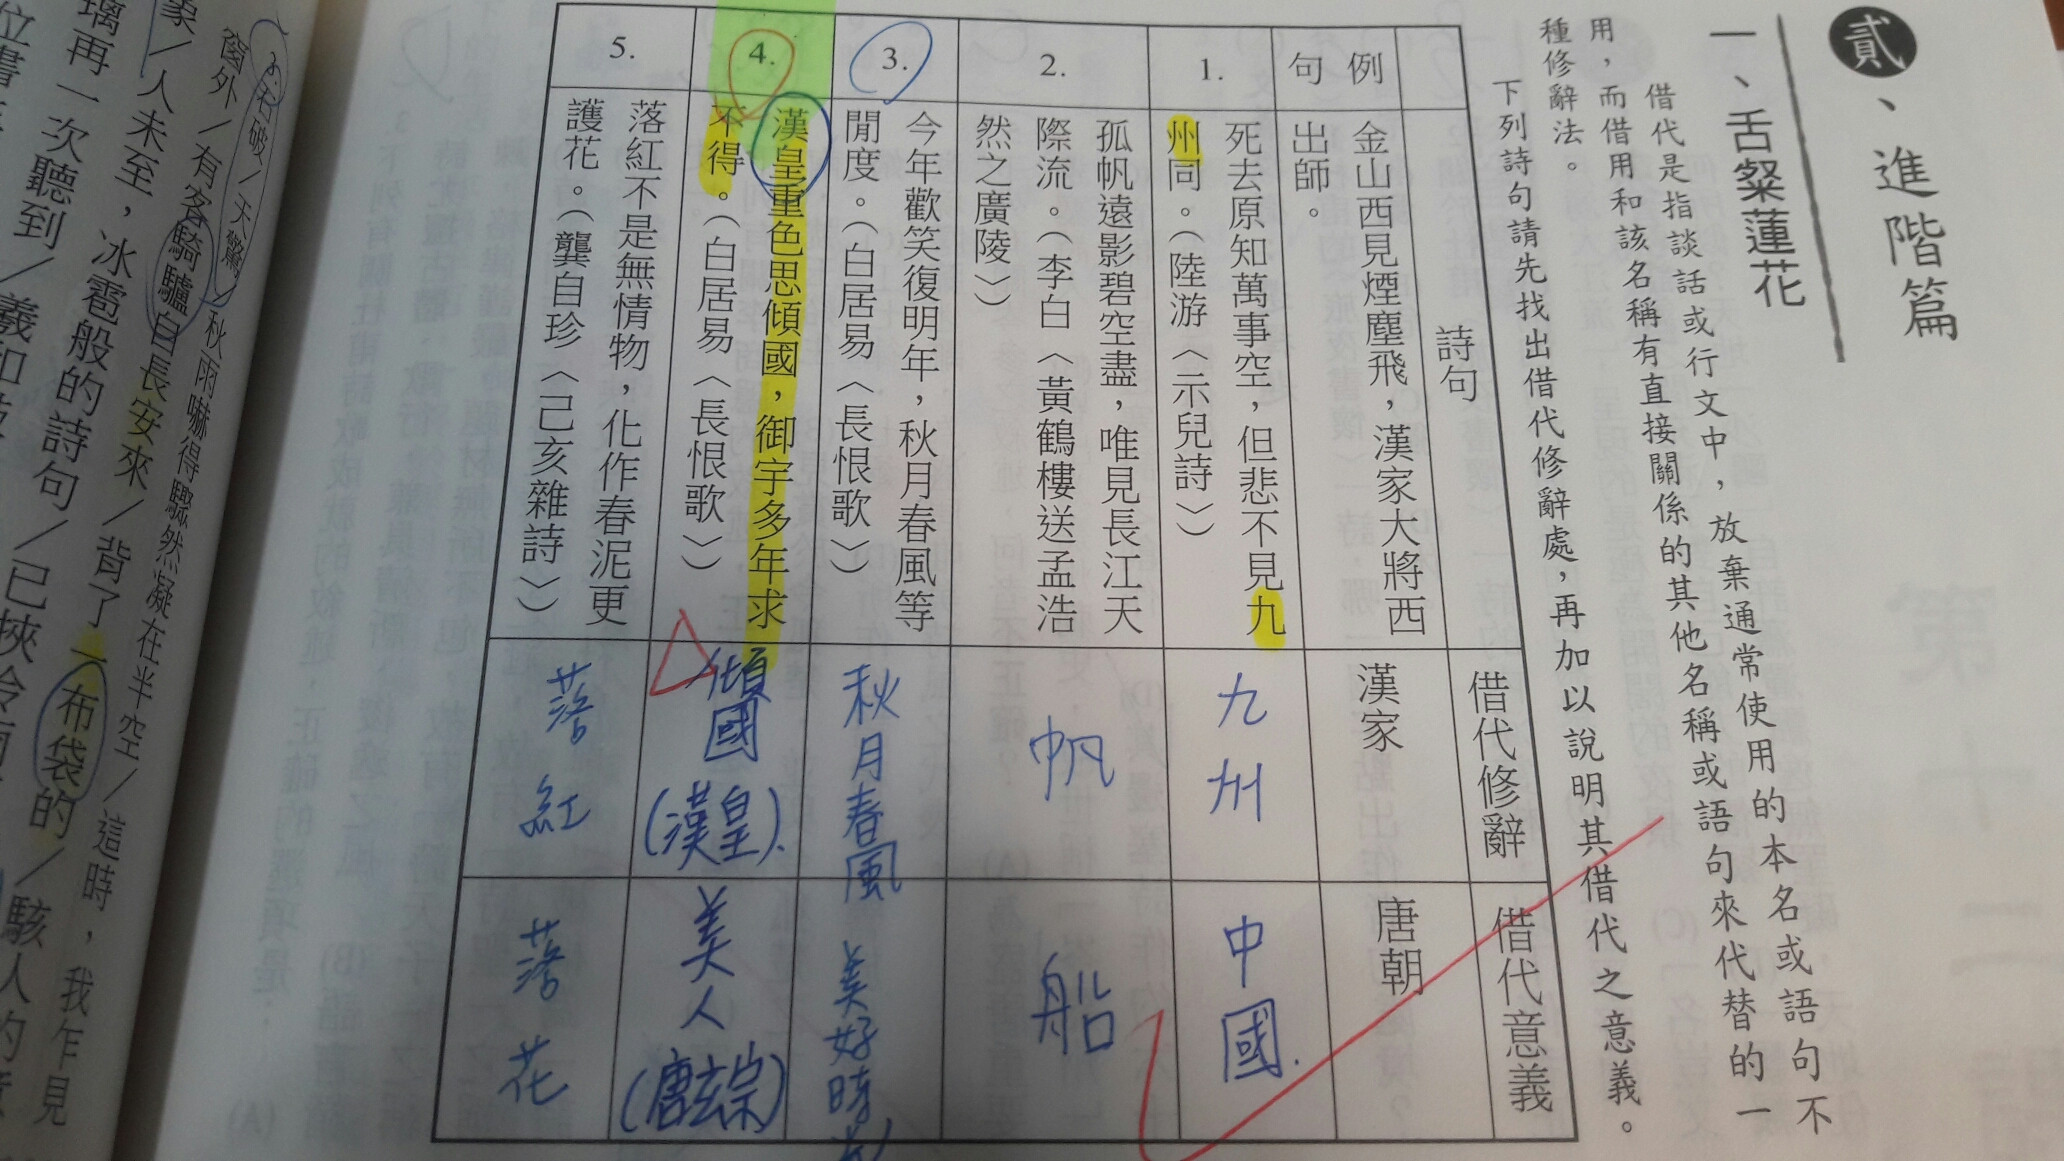 貳、進階篇
一、舌粲蓮花
借代是指談話或行文中，放棄通常使用的本名或語句不
用，而借用和該名稱有直接關係的其他名稱或語句來代替的一
種修辭法。
下列詩句請先找出借代修辭處，再加以說明其借代之意義。
詩句
借代修辭
借代意義
例句
金山西見煙塵飛，漢家大將西
出師。
漢家
唐朝
1.
死去原知萬事空，但悲不見九
州同。（陸游〈示兒詩〉）
九州
中國.
2.
孤帆遠影碧空盡，唯見長江天
際流。（李白〈黃鶴樓送孟浩
然之廣陵〉）
帆
船
3.
今年歡笑復明年，秋月春風等
閒度。（白居易〈長恨歌〉）
秋月春風
美好時
4.
漢皇重色思傾國，御宇多年求
不得。（白居易〈長恨歌〉）
傾國
(漢皇).
美人
(唐玄宗)
5.
落紅不是無情物，化作春泥更
護花。（龔自珍〈己亥雜詩〉）
落紅
落花
石破／天驚／秋雨嚇得驟然凝在半空／這時，我乍見
窗外／有客騎驢自長安來／背了一布袋的／駭人的意
象／人未至，冰雹般的詩句／已挾冷雨
璃再一次聽到／羲和